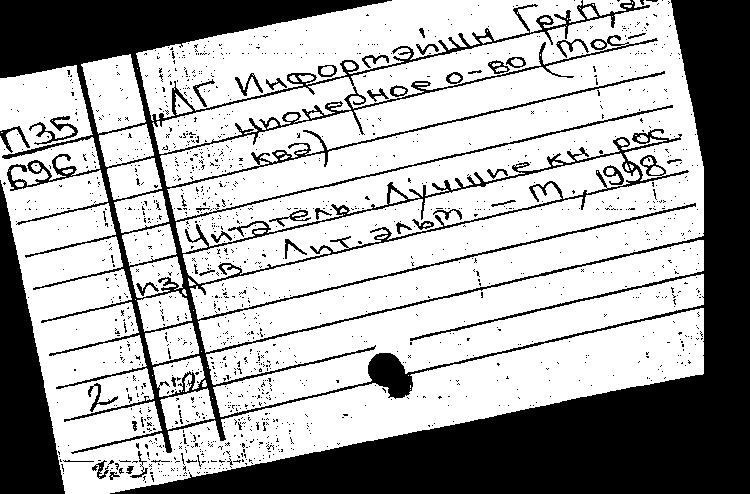 П35
696
„ЛГ Информэйшн Груп", ак
ционерное о-во (Мос-
ква)
Читатель : Лучшие кн. рос.
изд-в : Лит. альм. – М., 1998-
2